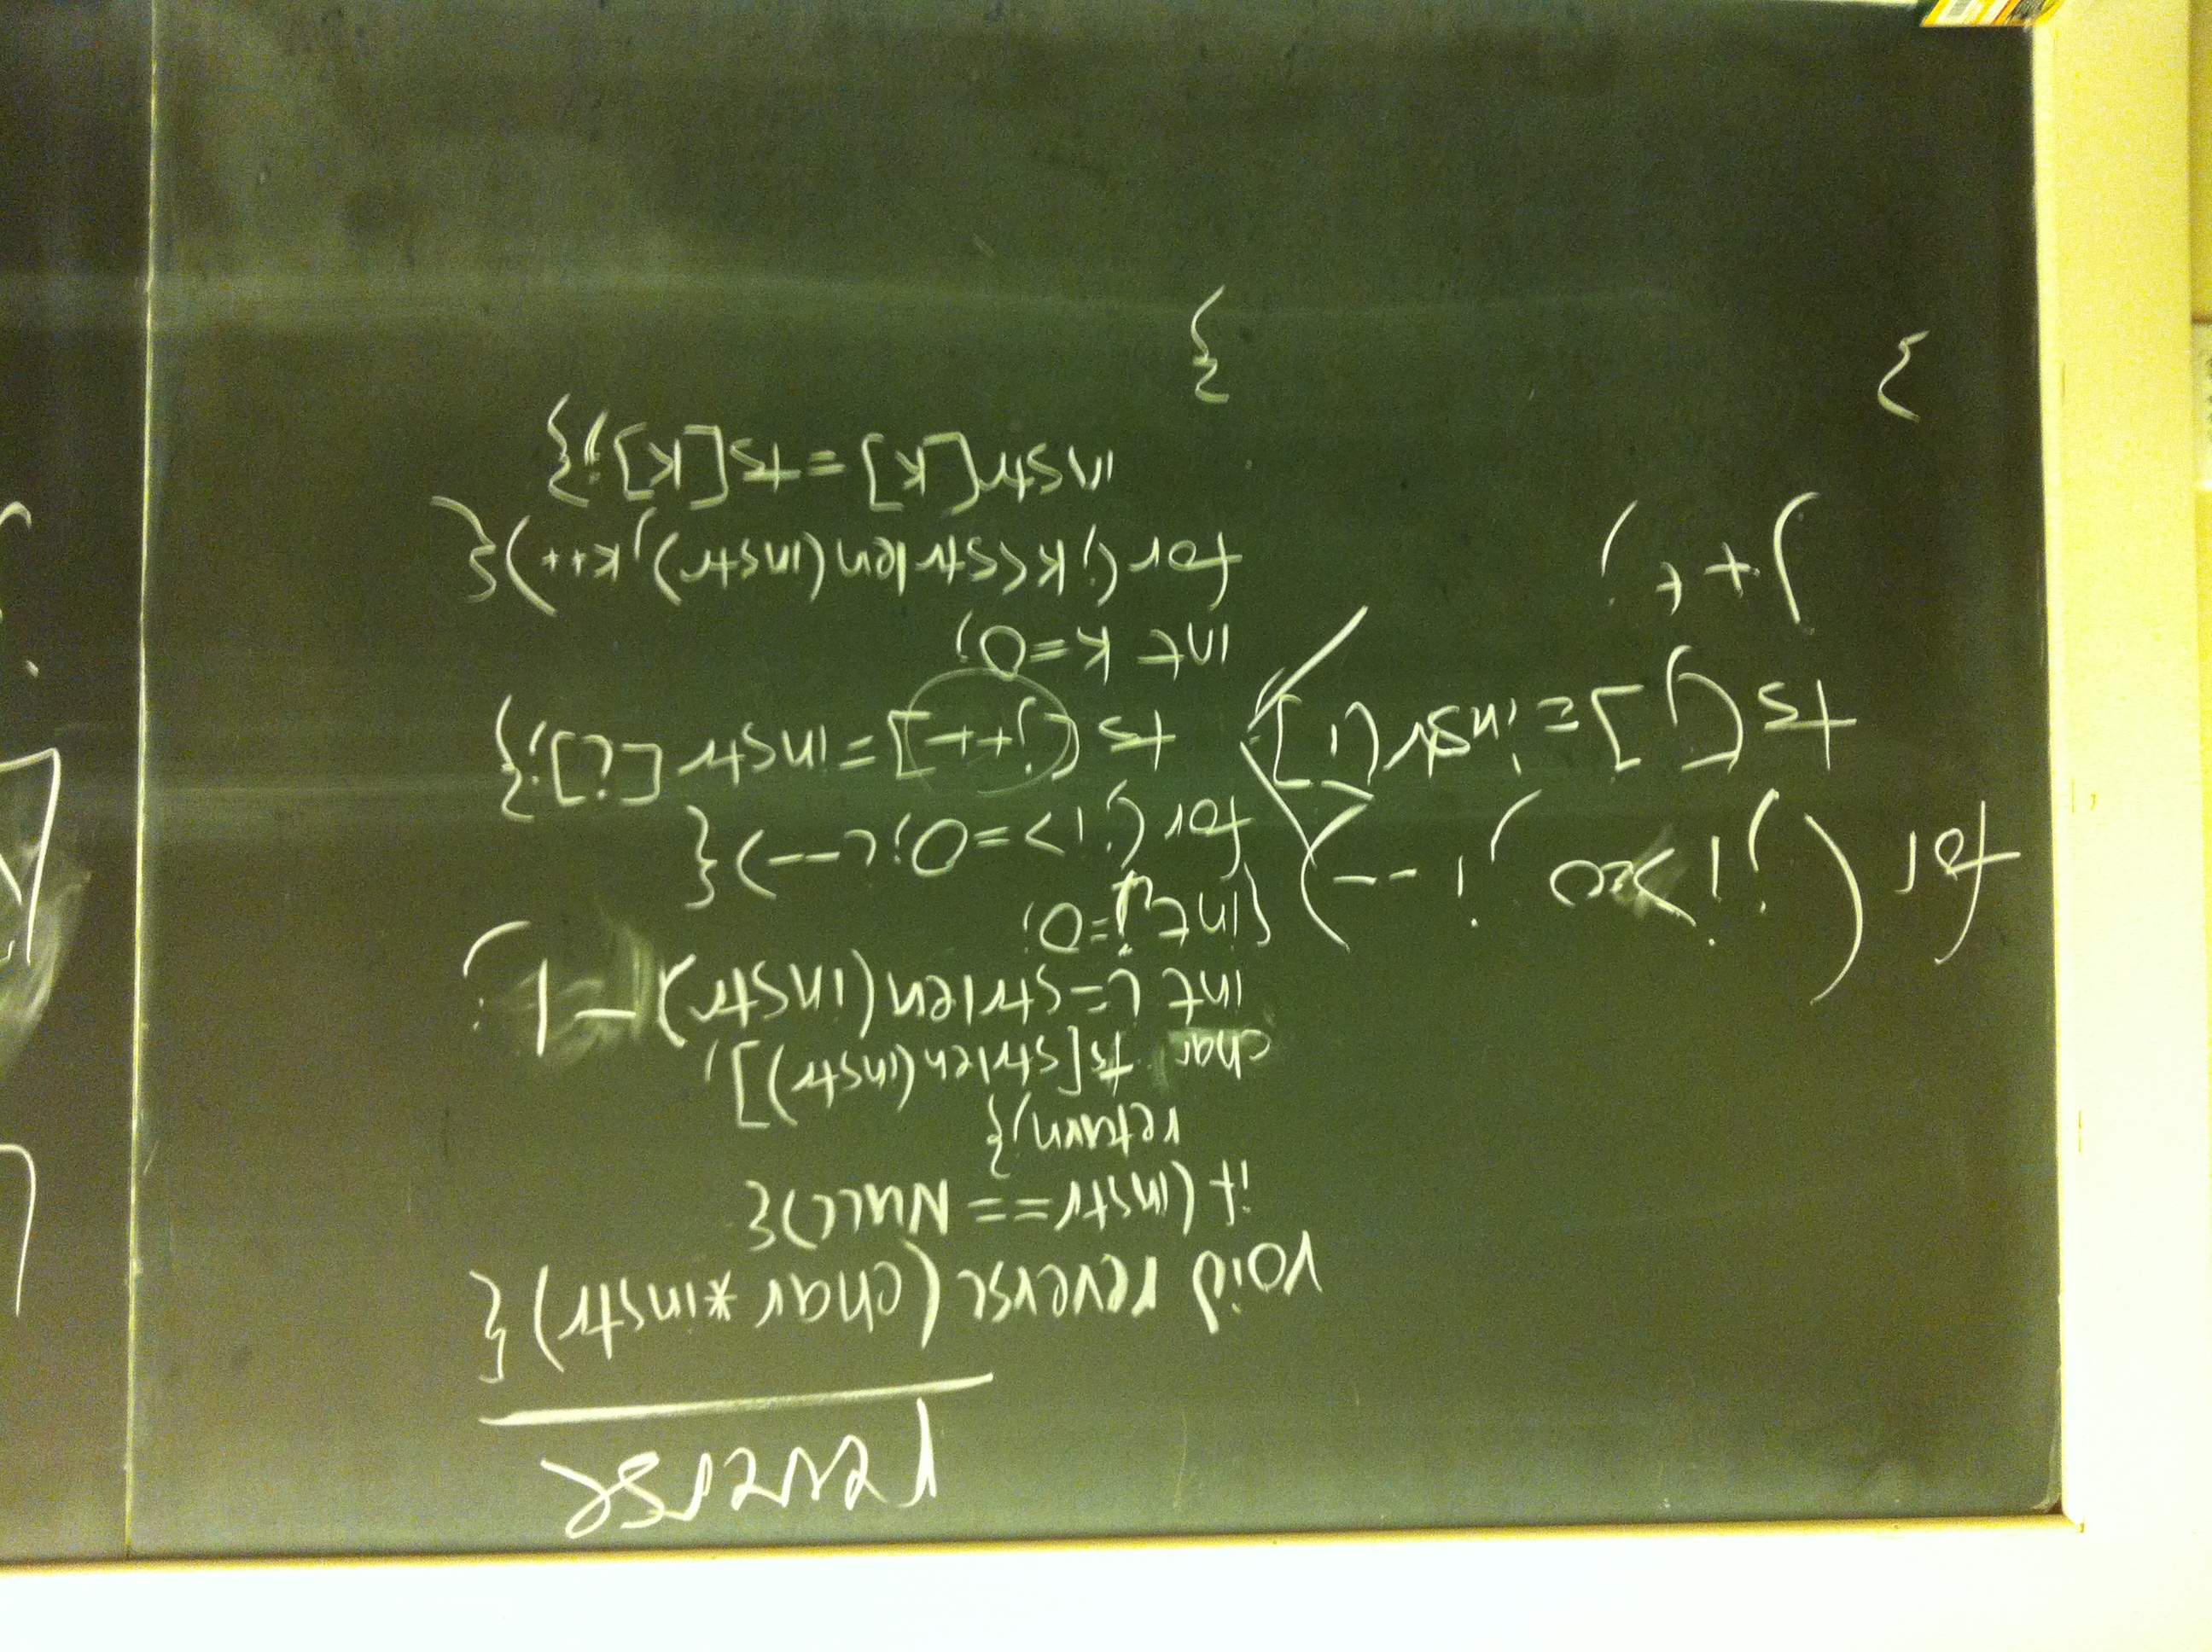 reverse
void reverse(char *instr){
if(instr==NULL){
return;}
char ts[strlen(instr)];
int i=strlen(instr)-1;
int j=0;
for(;i>=0;i--){
ts[j++]=instr[i];}
int k=0;
for(;k<strlen(instr);k++){
instr[k]=ts[k];}
}
for(;i>=0;i--){
ts[j]=instr[i];
j++;
}